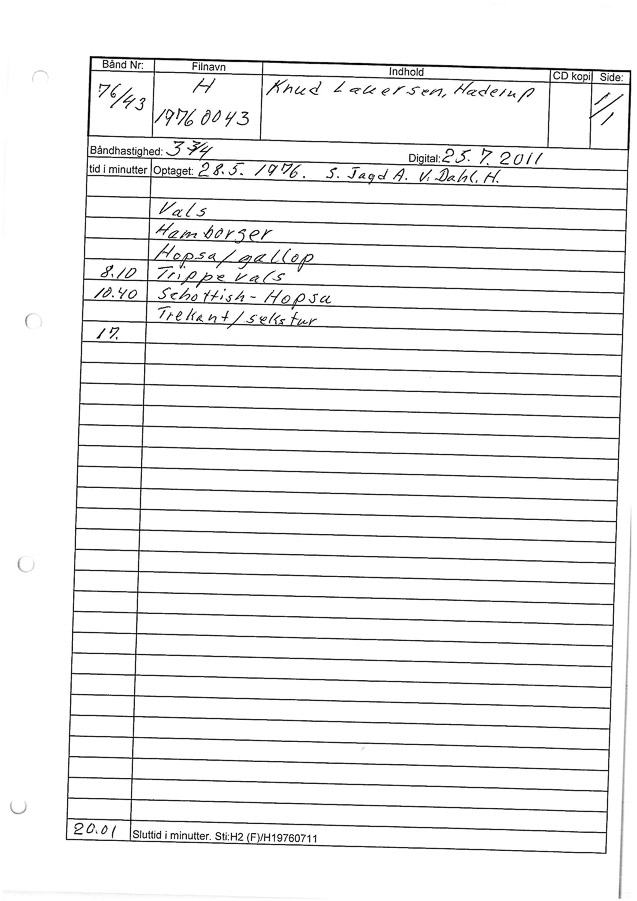 Bånd Nr: Filnavn Indhold CD kopi Side:
76/43 H Knud Lauersen, Haderup 1/1
19760043
Båndhastighed: 3 3/4 Digital: 25.7.2011
tid i minutter Optaget: 28.5.1976. S. Jagd A. V. Dahl. H.
Vals
Hamborger
Hopsa/gallop
8.10 Trippevals
10.40 Schottish-Hopsa
Trekant/sekstur
17.
20.01 Sluttid i minutter. Sti:H2 (F)/H19760711